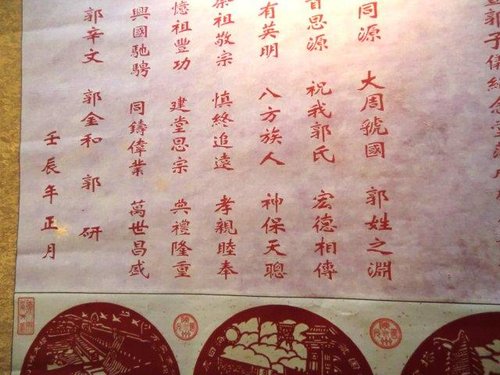 同源 大周虢國 郭姓之淵
思源 祝我郭氏 宏德相傳
有英明 八方族人 神保天聰
祖敬宗 慎終追遠 孝親睦奉
憶祖豐功 建堂思宗 典禮隆重
興國馳騁 同鑄偉業 萬世昌盛
郭辛文 郭金和 郭研
壬辰年正月